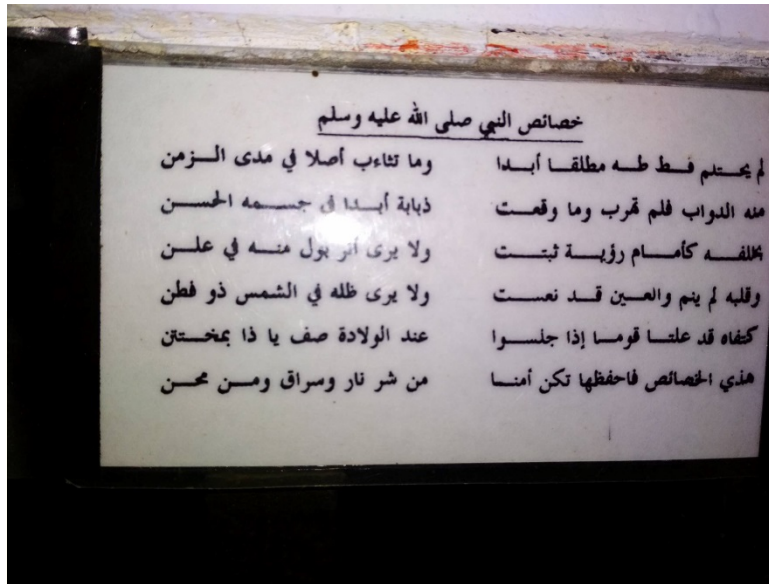 خصائص النبي صلى الله عليه وسلم
لم يحتلم قط طه مطلقا أبدا وما تثاءب أصلا في مدى الزمن
منه الدواب فلم تهرب وما وقعت ذبابة أبدا في جسمه الحسن
بخلفه كأمام رؤية ثبتت ولا يرى أثر بول منه في علن
وقلبه لم ينم والعين قد نعست ولا يرى ظله في الشمس ذو فطن
كتفاه قد علتا قوما إذا جلسوا عند الولادة صف يا ذا بمختتن
هذي الخصائص فاحفظها تكن أمنا من شر نار وسراق ومن محن